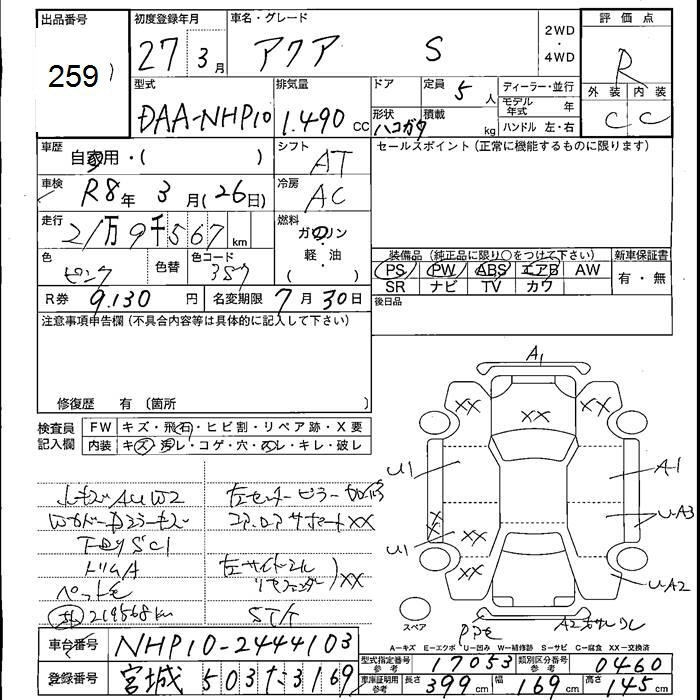 出品番号 初度登録年月 車名・グレード 2WD・4WD 評価点
259 27年3月 アクア S R
型式 排気量 ドア 定員 5人 ディーラー・並行 外装 内装
DAA-NHP10 1.490cc 形状 ハコガタ 積載 kg モデル年式 年 C C
ハンドル 左・右
車歴 自家用・( ) シフト AT セールスポイント (正常に機能するものに限ります)
車検 R8年3月(26日) 冷房 AC
走行 21万9千567km 燃料 ガソリン・軽・油 ( )
色 ピンク 色替 色コード 3S7 装備品 (純正品に限り○をつけて下さい) 新車保証書
PS PW ABS エアB AW 有・無
SR ナビ TV カワ
R券 9.130円 名変期限 7月30日 後日品
注意事項申告欄 (不具合内容等は具体的に記入して下さい)
修復歴 有 (箇所 )
検査員記入欄 FW キズ・飛石・ヒビ割・リペア跡・X要
内装 キズ・汚レ・コゲ・穴・スレ・キレ・破レ
A1
XX XX XX
U1 A1
U-A3
XX
U1 XX
XX U-A2
スペア
A-キズ E-エクボ U-凹み W-補修跡 S-サビ C-腐食 XX-交換済
コアロアサポートXX
ドリムA
左サイドシル
リヤフェンダー XX
219568km
車台番号 NHP10-2444103
登録番号 宮城 503 た 3169
型式指定番号 参考 17053 類別区分番号 参考 0460
車庫証明用 参考 長さ 399cm 幅 169cm 高さ 145cm